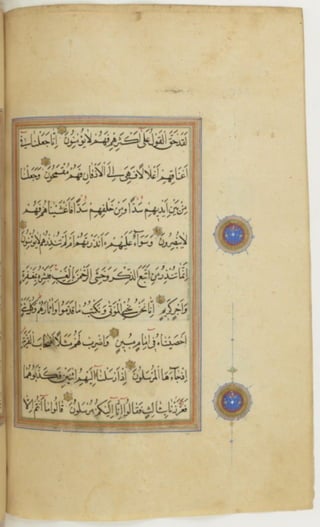 لَقَدْ حَقَّ الْقَوْلُ عَلَى أَكْثَرِهِمْ فَهُمْ لَا يُؤْمِنُونَ إِنَّا جَعَلْنَا فِي
أَعْنَاقِهِمْ أَغْلَالًا فَهِيَ إِلَى الْأَذْقَانِ فَهُمْ مُقْمَحُونَ وَجَعَلْنَا
مِنْ بَيْنِ أَيْدِيهِمْ سَدًّا وَمِنْ خَلْفِهِمْ سَدًّا فَأَغْشَيْنَاهُمْ فَهُمْ
لَا يُبْصِرُونَ وَسَوَاءٌ عَلَيْهِمْ ءَأَنْذَرْتَهُمْ أَمْ لَمْ تُنْذِرْهُمْ لَا يُؤْمِنُونَ
إِنَّمَا تُنْذِرُ مَنِ اتَّبَعَ الذِّكْرَ وَخَشِيَ الرَّحْمٰنَ بِالْغَيْبِ فَبَشِّرْهُ بِمَغْفِرَةٍ
وَأَجْرٍ كَرِيمٍ إِنَّا نَحْنُ نُحْيِ الْمَوْتَى وَنَكْتُبُ مَا قَدَّمُوا وَآثَارَهُمْ وَكُلَّ شَيْءٍ
أَحْصَيْنَاهُ فِي إِمَامٍ مُبِينٍ وَاضْرِبْ لَهُمْ مَثَلًا أَصْحَابَ الْقَرْيَةِ
إِذْ جَاءَهَا الْمُرْسَلُونَ إِذْ أَرْسَلْنَا إِلَيْهِمُ اثْنَيْنِ فَكَذَّبُوهُمَا
فَعَزَّزْنَا بِثَالِثٍ فَقَالُوا إِنَّا إِلَيْكُمْ مُرْسَلُونَ قَالُوا مَا أَنْتُمْ إِلَّا